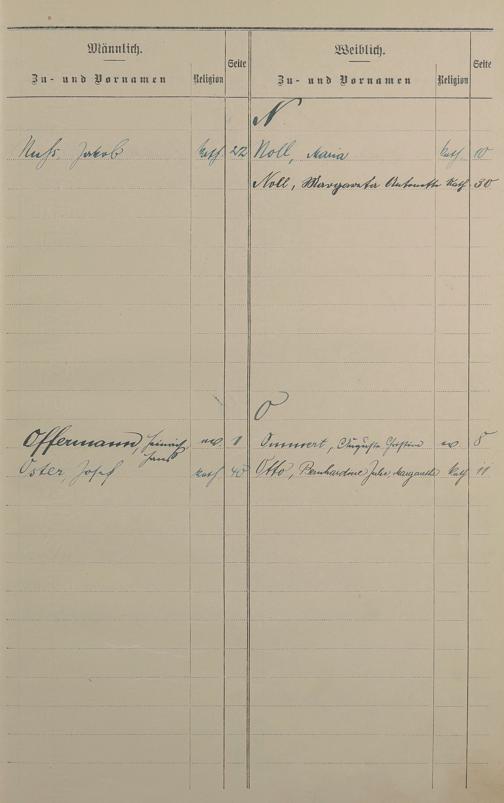 Männlich.
Zu- und Vornamen
Religion
Seite
Weiblich.
Zu- und Vornamen
Religion
Seite
N
Nuß, Jakob Kath. 22
Noll, Maria Kath. 10
Noll, Margareta Antonette Kath 30
O
Offermann, Heinrich ev. 1
Oster, Josef Kath 40
Auguste ev. 8
Otto, Bernhardine Julie Margarethe Kath 11